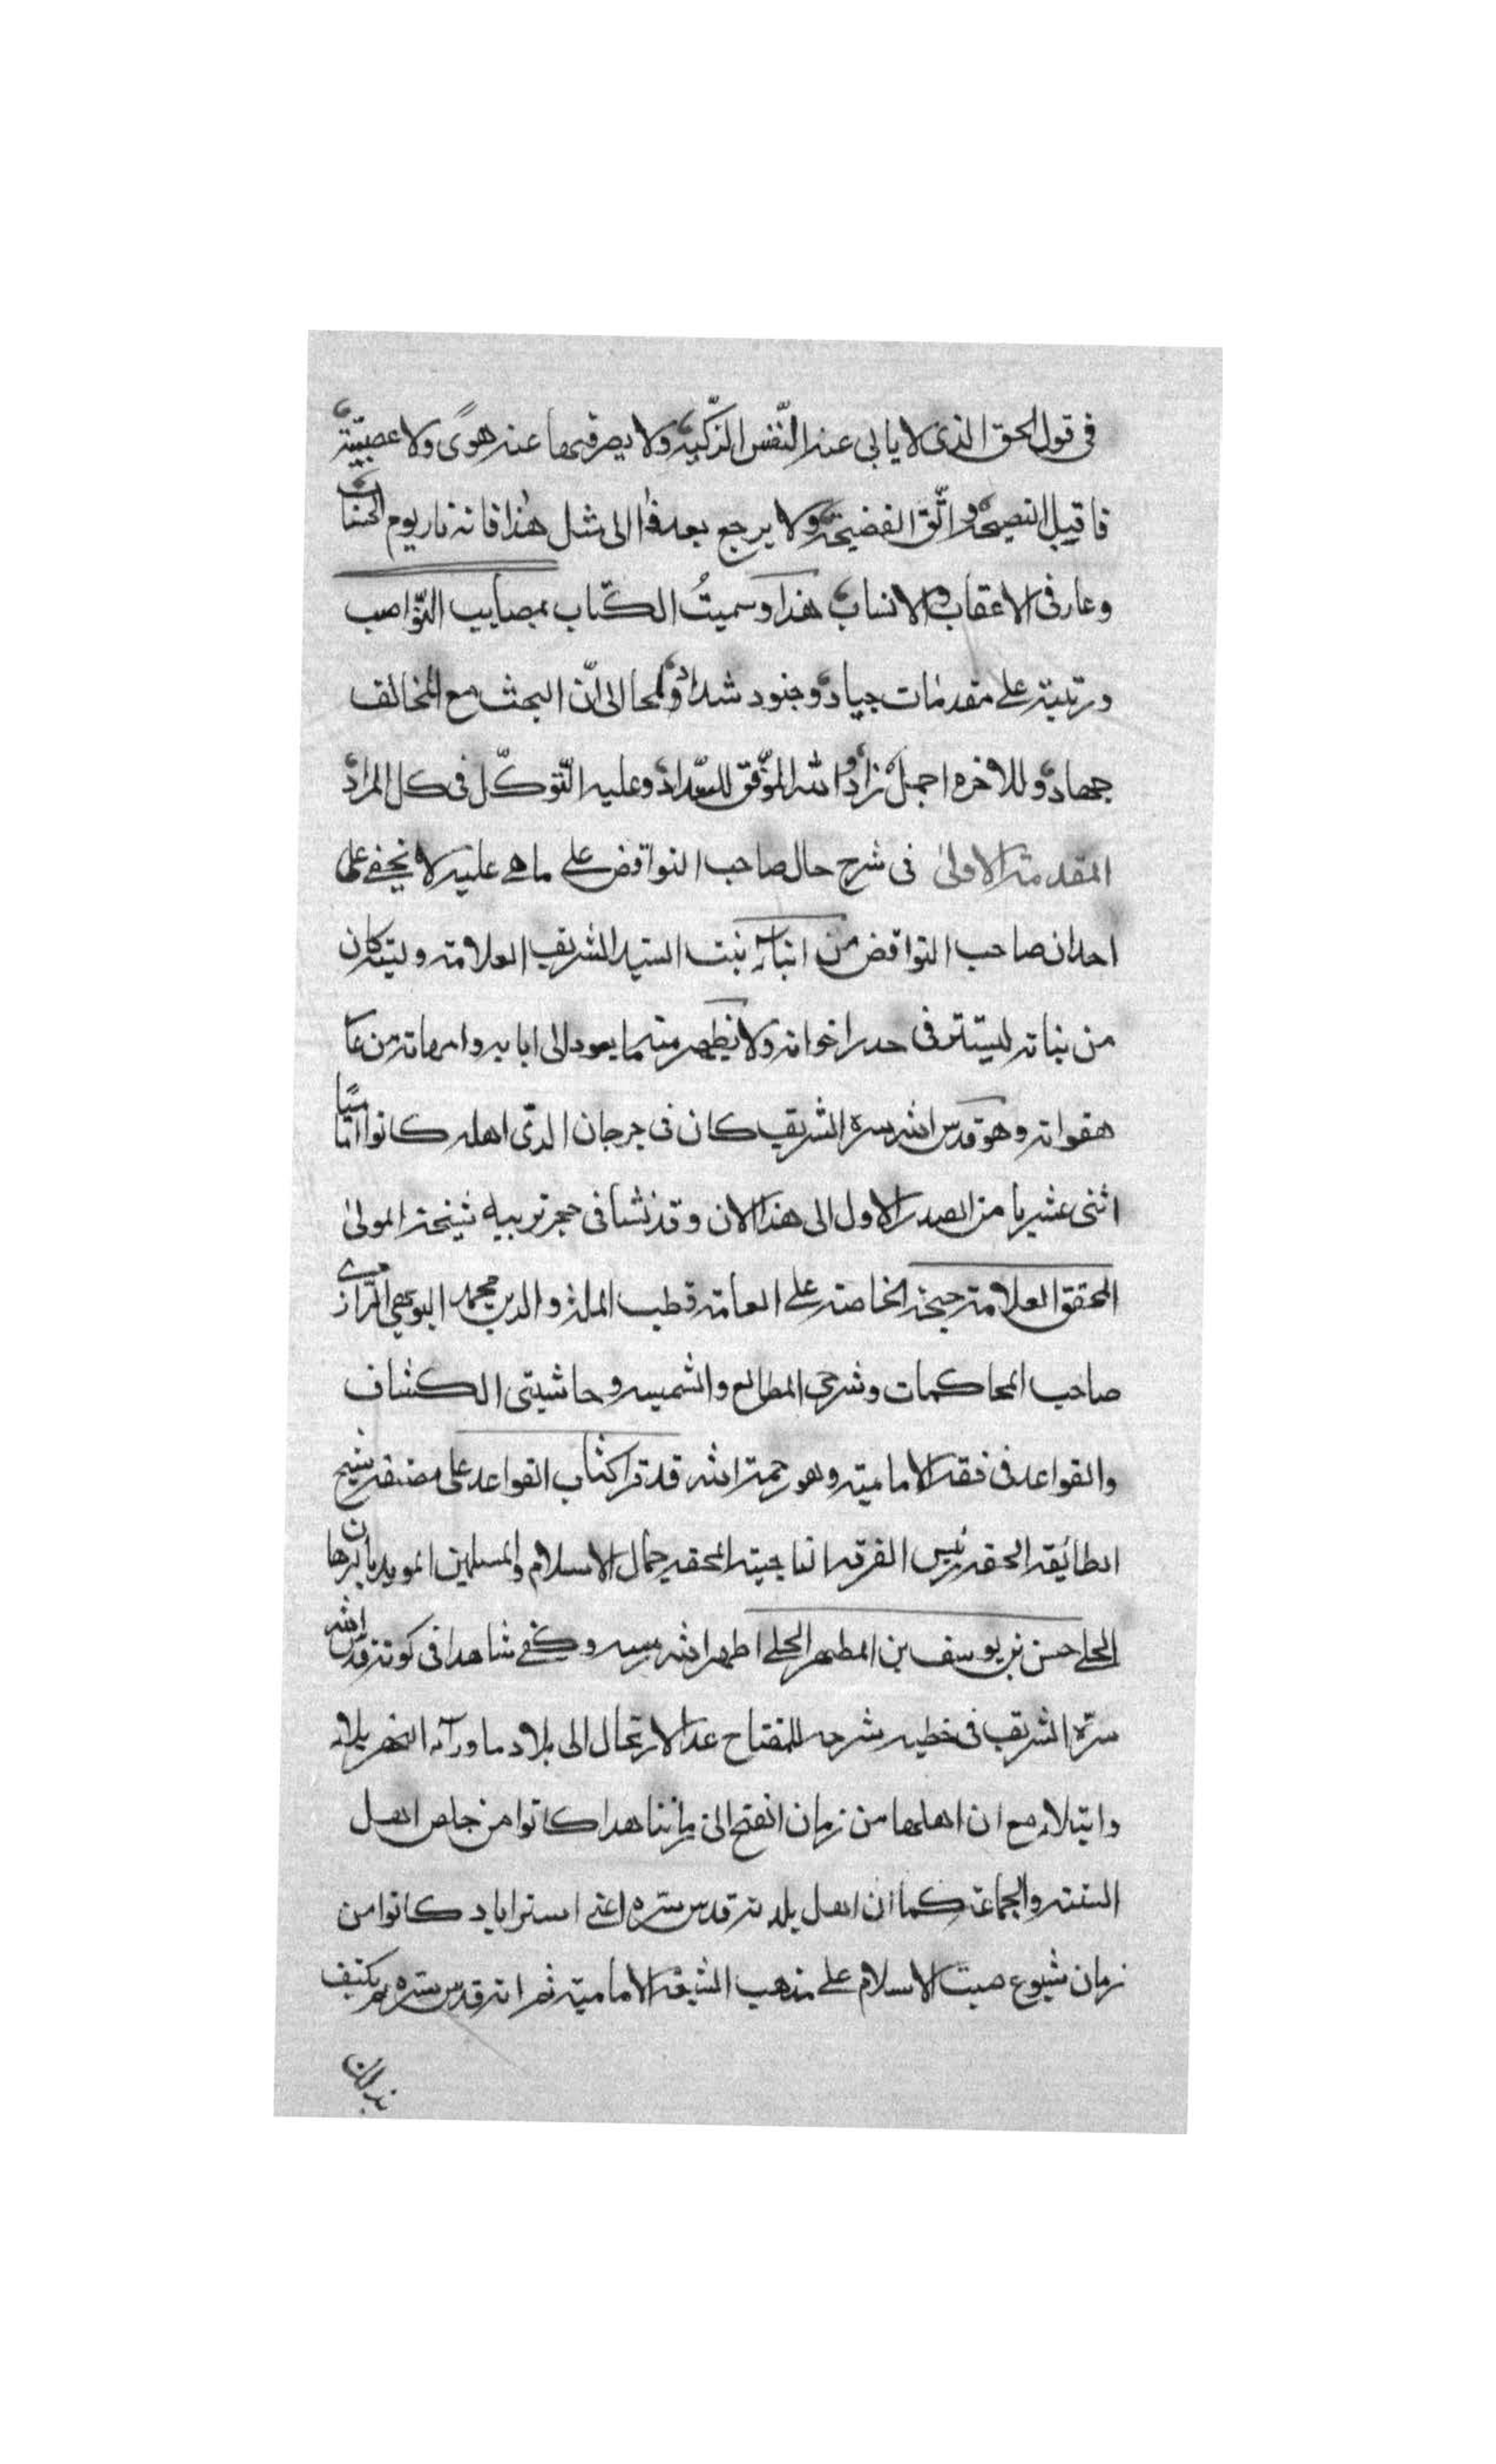 فی قول الحق الذی لا یابی عنه النّفس الزّکیه ولا یصرفها عنه هوًی ولا عصبیّة
فاقبل النصیحة واتّق الفضیحة ولا یرجع بعد هذا الی مثل هذا فانه نار یوم الحساب
وعار فی الاعقاب والانساب هذا وسمیتُ الکتاب بمصایب النّواصب
ورتبته علی مقدمات جیاد وجنود شداد ولمحا الی انّ البحث مع المخالف
جهاد وللاخره اجمل زاد والله الموّفق للسّداد وعلیه التّوکّل فی کل المراد
المقدمة الاولی فی شرح حال صاحب النواقض علی ما هی علیه لا یخفی علی
احد ان صاحب النواقض من ابناء بنت السید الشریف العلامه ولیته کان
من بناته لیستتر فی خدر اخواته ولا یظهر منه ما یعود الی ابایه وامهاته من عا
هفواته وهو قدس الله سره الشریف کان فی جرجان الذی اهله کانوا امامیًا
اثنی عشریا من الصدر الاول الی هذا الان وقد نشا فی حجر تربیة شیخه المولی
المحقق العلامة حجة الخاصه علی العامه قطب الملة والدین محمد البویهی الرازی
صاحب المحاکمات وشرحی المطالع والشمسیه وحاشیتی الکشاف
والقواعد فی فقه الامامیة وهو رحمة الله قد قرا کتاب القواعد علی مصنفه شیخ
الطائفه الحقه رئیس الفرقه الناجیته المحقه جمال الاسلام والمسلمین الموید بالبرهان
الحلی حسن بن یوسف بن المطهر الحلی اطهر الله رمسه وکفی شاهدا فی کونه قدس الله
سرّه الشریف فی خطبه شرحه للمفتاح عد الارتحال الی بلاد ماوراء النهر بلاء
وابتلاء مع ان اهلها من زمان الفتح الی زماننا هذا کانوا من خلص اهل
السنته والجماعة کما ان اهل بلدته قدس سره اعنی استراباد کانوا من
زمان شیوع صیت الاسلام علی مذهب الشیعة الامامیة ثم انه قدس سره لم یکتف
بذلک